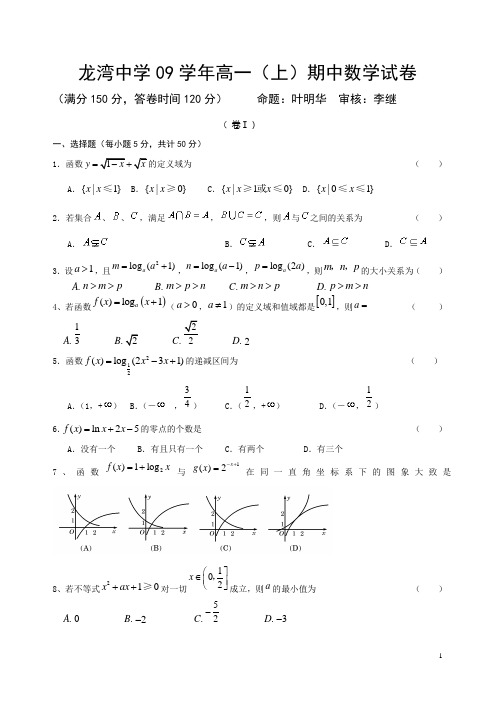 龙湾中学09学年高一（上）期中数学试卷
（满分150分，答卷时间120分） 命题：叶明华 审核：李继
（ 卷Ⅰ ）
一、选择题（每小题5分，共计50分）
1．函数 y = √(1-x) + √x 的定义域为 （ ）
A．{x | x ≤ 1} B．{x | x ≥ 0} C．{x | x ≥ 1或x ≤ 0} D．{x | 0 ≤ x ≤ 1}
2．若集合A、B、C，满足A∩B=A，B∪C=C，则A与C之间的关系为 （ ）
A． A⫋C B． C⫋A C． A⊆C D． C⊆A
3．设 a > 1，且 m = logₐ(a² + 1)，n = logₐ(a − 1)，p = logₐ(2a)，则 m、n、p 的大小关系为（ ）
A. n > m > p B. m > p > n C. m > n > p D. p > m > n
4、若函数 f(x) = logₐ(x + 1)（a > 0，a ≠ 1）的定义域和值域都是[0,1]，则 a = （ ）
A. 1/3 B. √2 C. √2/2 D. 2
5．函数 f(x) = log_{1/2}(2x² − 3x + 1) 的递减区间为 （ ）
A．（1，+∞） B．（−∞，3/4） C．（1/2，+∞） D．（−∞，1/2）
6．f(x) = ln x + 2x − 5 的零点的个数是 （ ）
A．没有一个 B．有且只有一个 C．有两个 D．有三个
7、函数 f(x) = 1 + log₂ x 与 g(x) = 2^{−x+1} 在同一直角坐标系下的图象大致是
y 2 1 O 1 2 x y 2 1 O 1 2 x y 2 1 O 1 2 x y 2 1 O 1 2 x
(A) (B) (C) (D)
8、若不等式 x² + ax + 1 ≥ 0 对一切 x ∈ (0, 1/2] 成立，则 a 的最小值为 （ ）
A. 0 B. −2 C. −5/2 D. −3
1